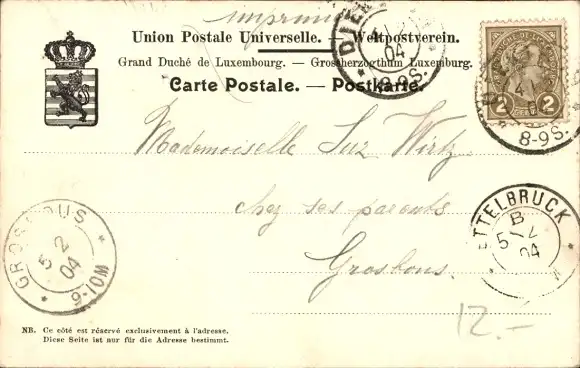 imprimé
Union Postale Universelle. — Weltpostverein.
Grand Duché de Luxembourg. — Grossherzogthum Luxemburg.
Carte Postale. — Postkarte.
4 2
04
8-9S.
GRAND-DUCHÉ-DE-LUXEMBOURG
2 2
CENT.
8-9S.
Mademoiselle Suz Wirtz
chez ses parents
Grosbous.
GROSBOUS
5 2
04
9-10M
ETTELBRUCK
B
5 2
04
12.-
NB. Ce côté est réservé exclusivement à l'adresse.
Diese Seite ist nur für die Adresse bestimmt.